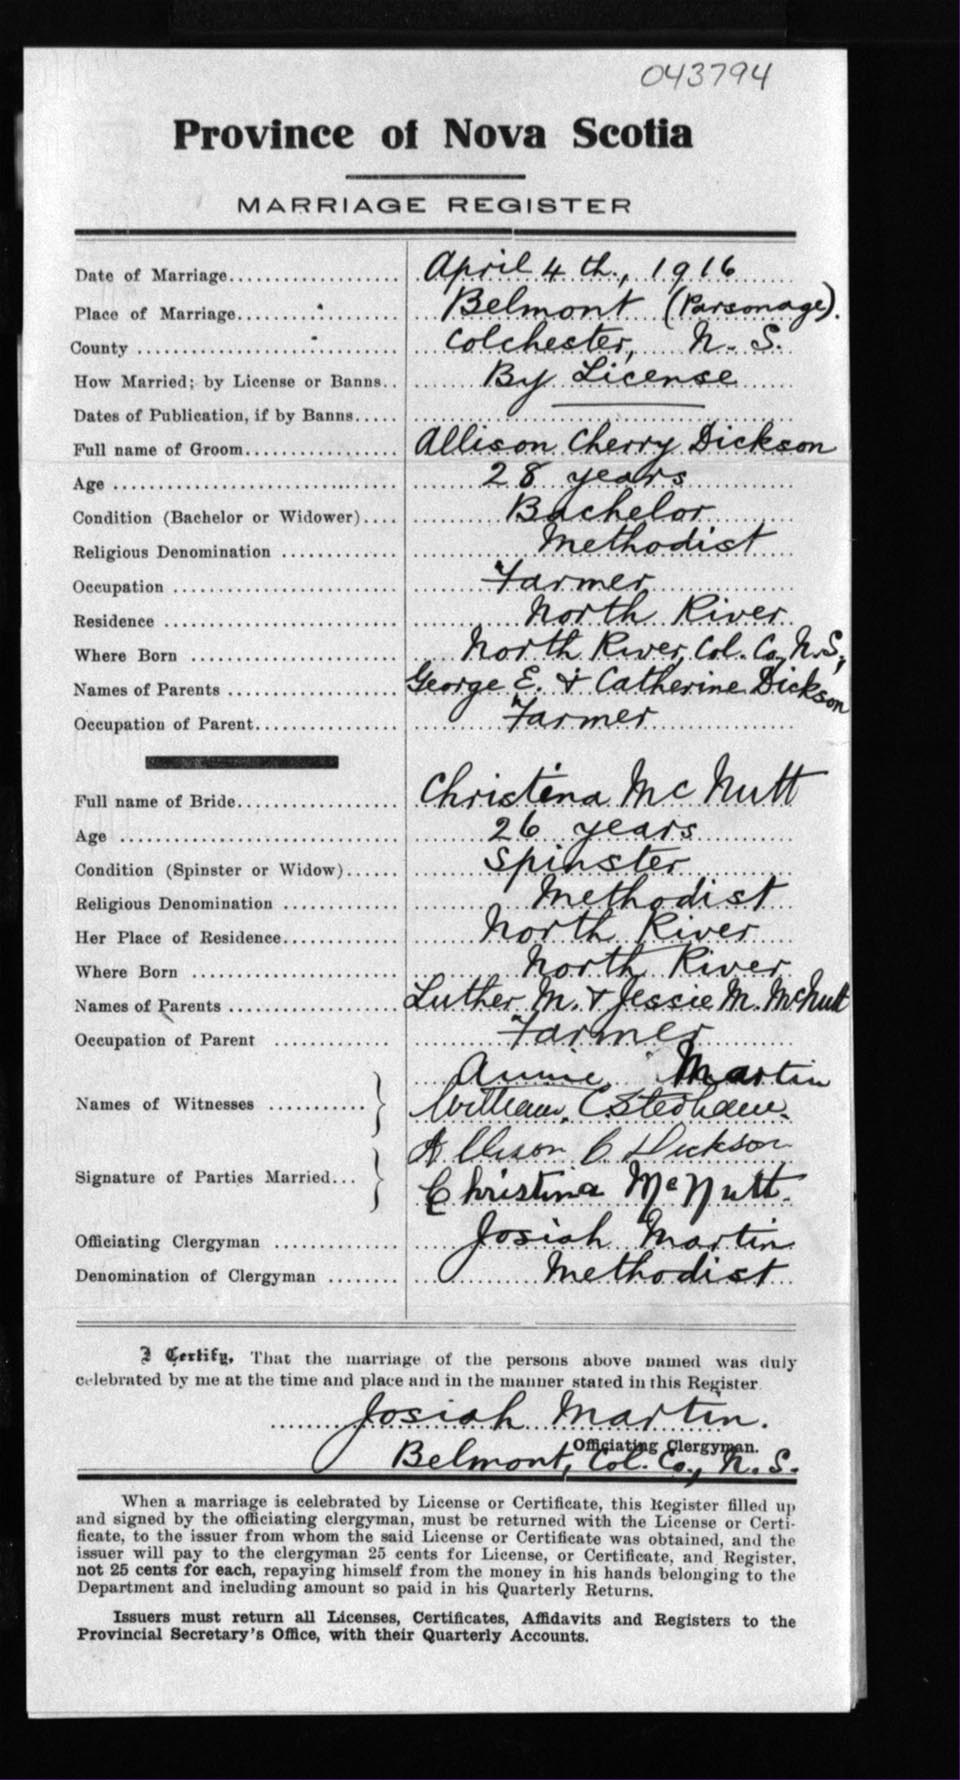 043794
Province of Nova Scotia
MARRIAGE REGISTER
Date of Marriage.................... April 4th., 1916
Place of Marriage.................. Belmont (Parsonage).
County .............................. Colchester, N. S.
How Married; by License or Banns.. By License
Dates of Publication, if by Banns.....
Full name of Groom.................. Allison Cherry Dickson
Age .................................. 28 years
Condition (Bachelor or Widower).... Bachelor
Religious Denomination ............. Methodist
Occupation .......................... Farmer
Residence ........................... North River
Where Born ........................ North River, Col. Co, N.S,
Names of Parents ................... George E. & Catherine Dickson
Occupation of Parent................ Farmer
Full name of Bride................... Christina McNutt
Age ................................. 26 years
Condition (Spinster or Widow)...... Spinster
Religious Denomination ............. Methodist
Her Place of Residence............. North River
Where Born ........................ North River
Names of Parents ................... Luther M. & Jessie M. McNutt
Occupation of Parent ............. Farmer
Annie Martin
Names of Witnesses ........... William
Allison C Dickson
Signature of Parties Married... Christina McNutt.
Officiating Clergyman .............. Josiah Martin
Denomination of Clergyman ........ Methodist
I Certify, That the marriage of the persons above named was duly
celebrated by me at the time and place and in the manner stated in this Register
Josiah Martin.
Officiating Clergyman.
Belmont, Col. Co., N. S.
When a marriage is celebrated by License or Certificate, this Register filled up
and signed by the officiating clergyman, must be returned with the License or Certi-
ficate, to the issuer from whom the said License or Certificate was obtained, and the
issuer will pay to the clergyman 25 cents for License, or Certificate, and Register,
not 25 cents for each, repaying himself from the money in his hands belonging to the
Department and including amount so paid in his Quarterly Returns.
Issuers must return all Licenses, Certificates, Affidavits and Registers to the
Provincial Secretary's Office, with their Quarterly Accounts.